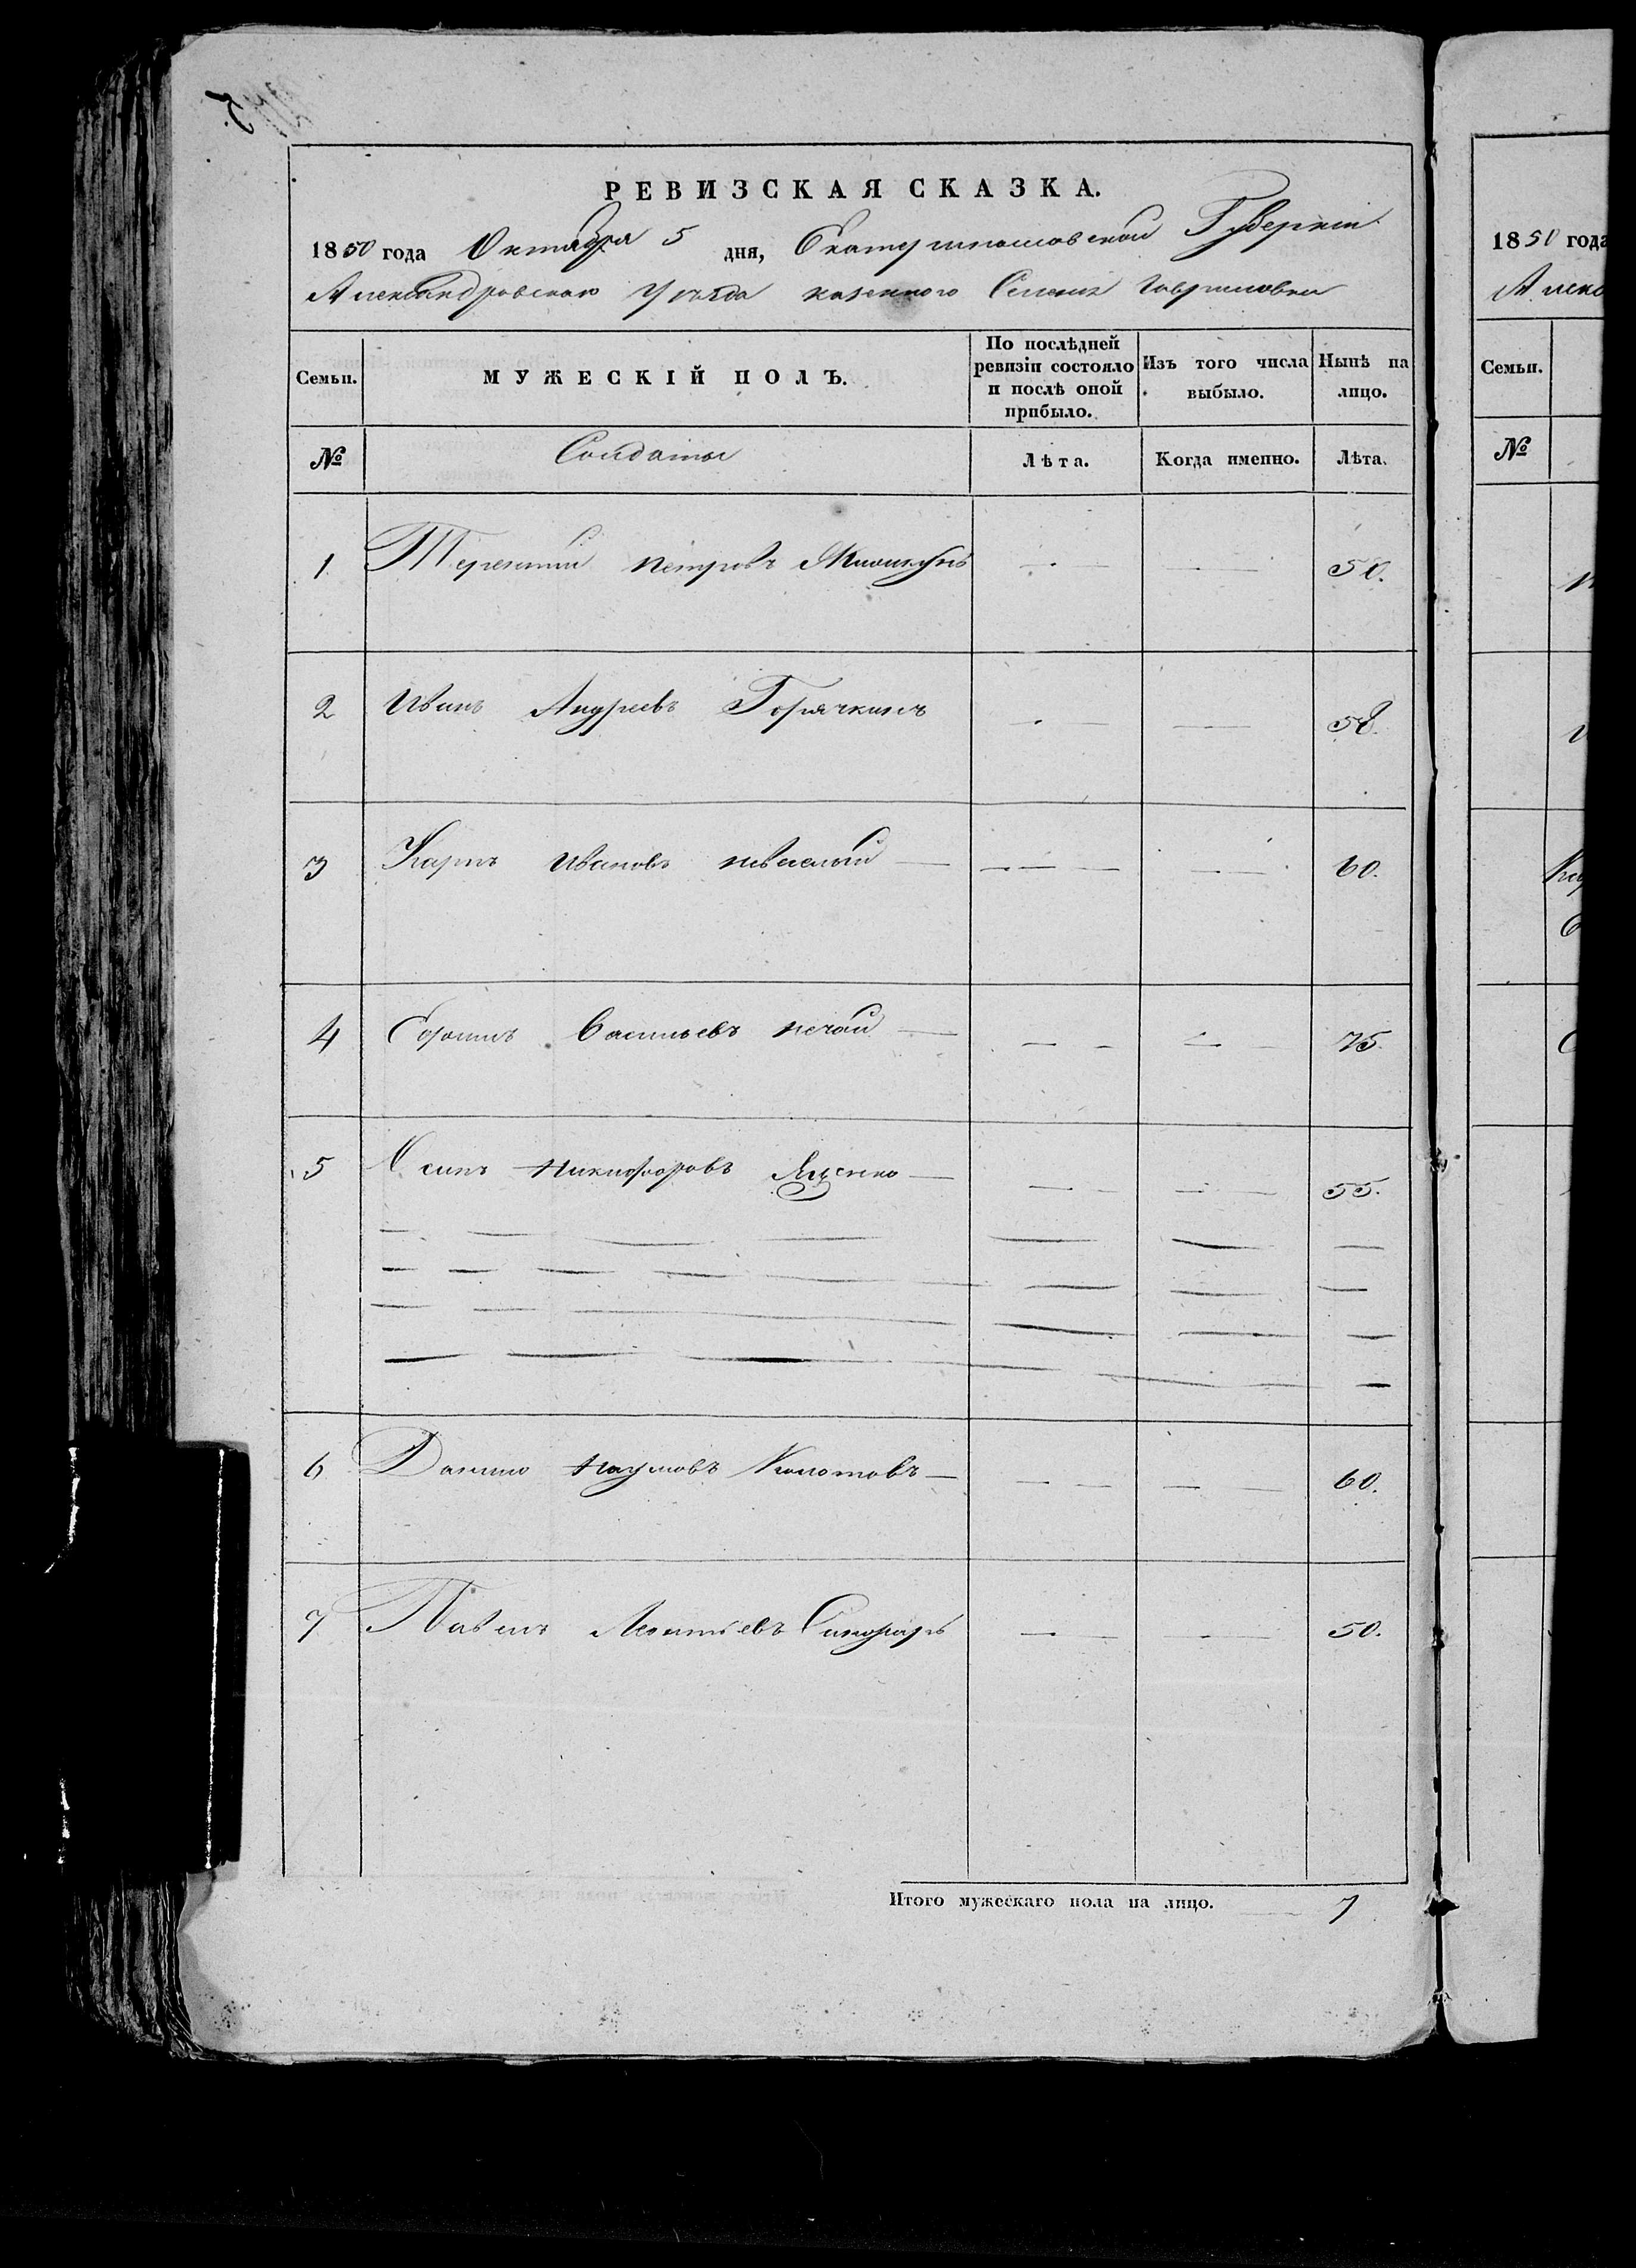 РЕВИЗСКАЯ СКАЗКА.
1850 года Октября 5 дня, Екатеринославской Губерніи
Александровскаго Уѣзда казенного Селенія Гавриловки
Семьи. МУЖЕСКІЙ ПОЛЪ. По послѣдней ревизіи состояло и послѣ оной прибыло. Изъ того числа выбыло. Нынѣ на лицо.
№ Солдаты Лѣта. Когда именно. Лѣта.
1 Терентій Петровъ — — 50.
2 Иванъ Андреевъ Горячкинъ — — 58.
3 Карпъ Ивановъ — — 60.
4 Васильевъ Нечай — — 75.
5 Осипъ Никифоровъ Яценко — — 55.
6 Данило Наумовъ Колотовъ — — 60.
7 Павелъ Леонтьевъ — — 50.
Итого мужескаго пола на лицо. 7
1850 года
Алекс
Семьи.
№